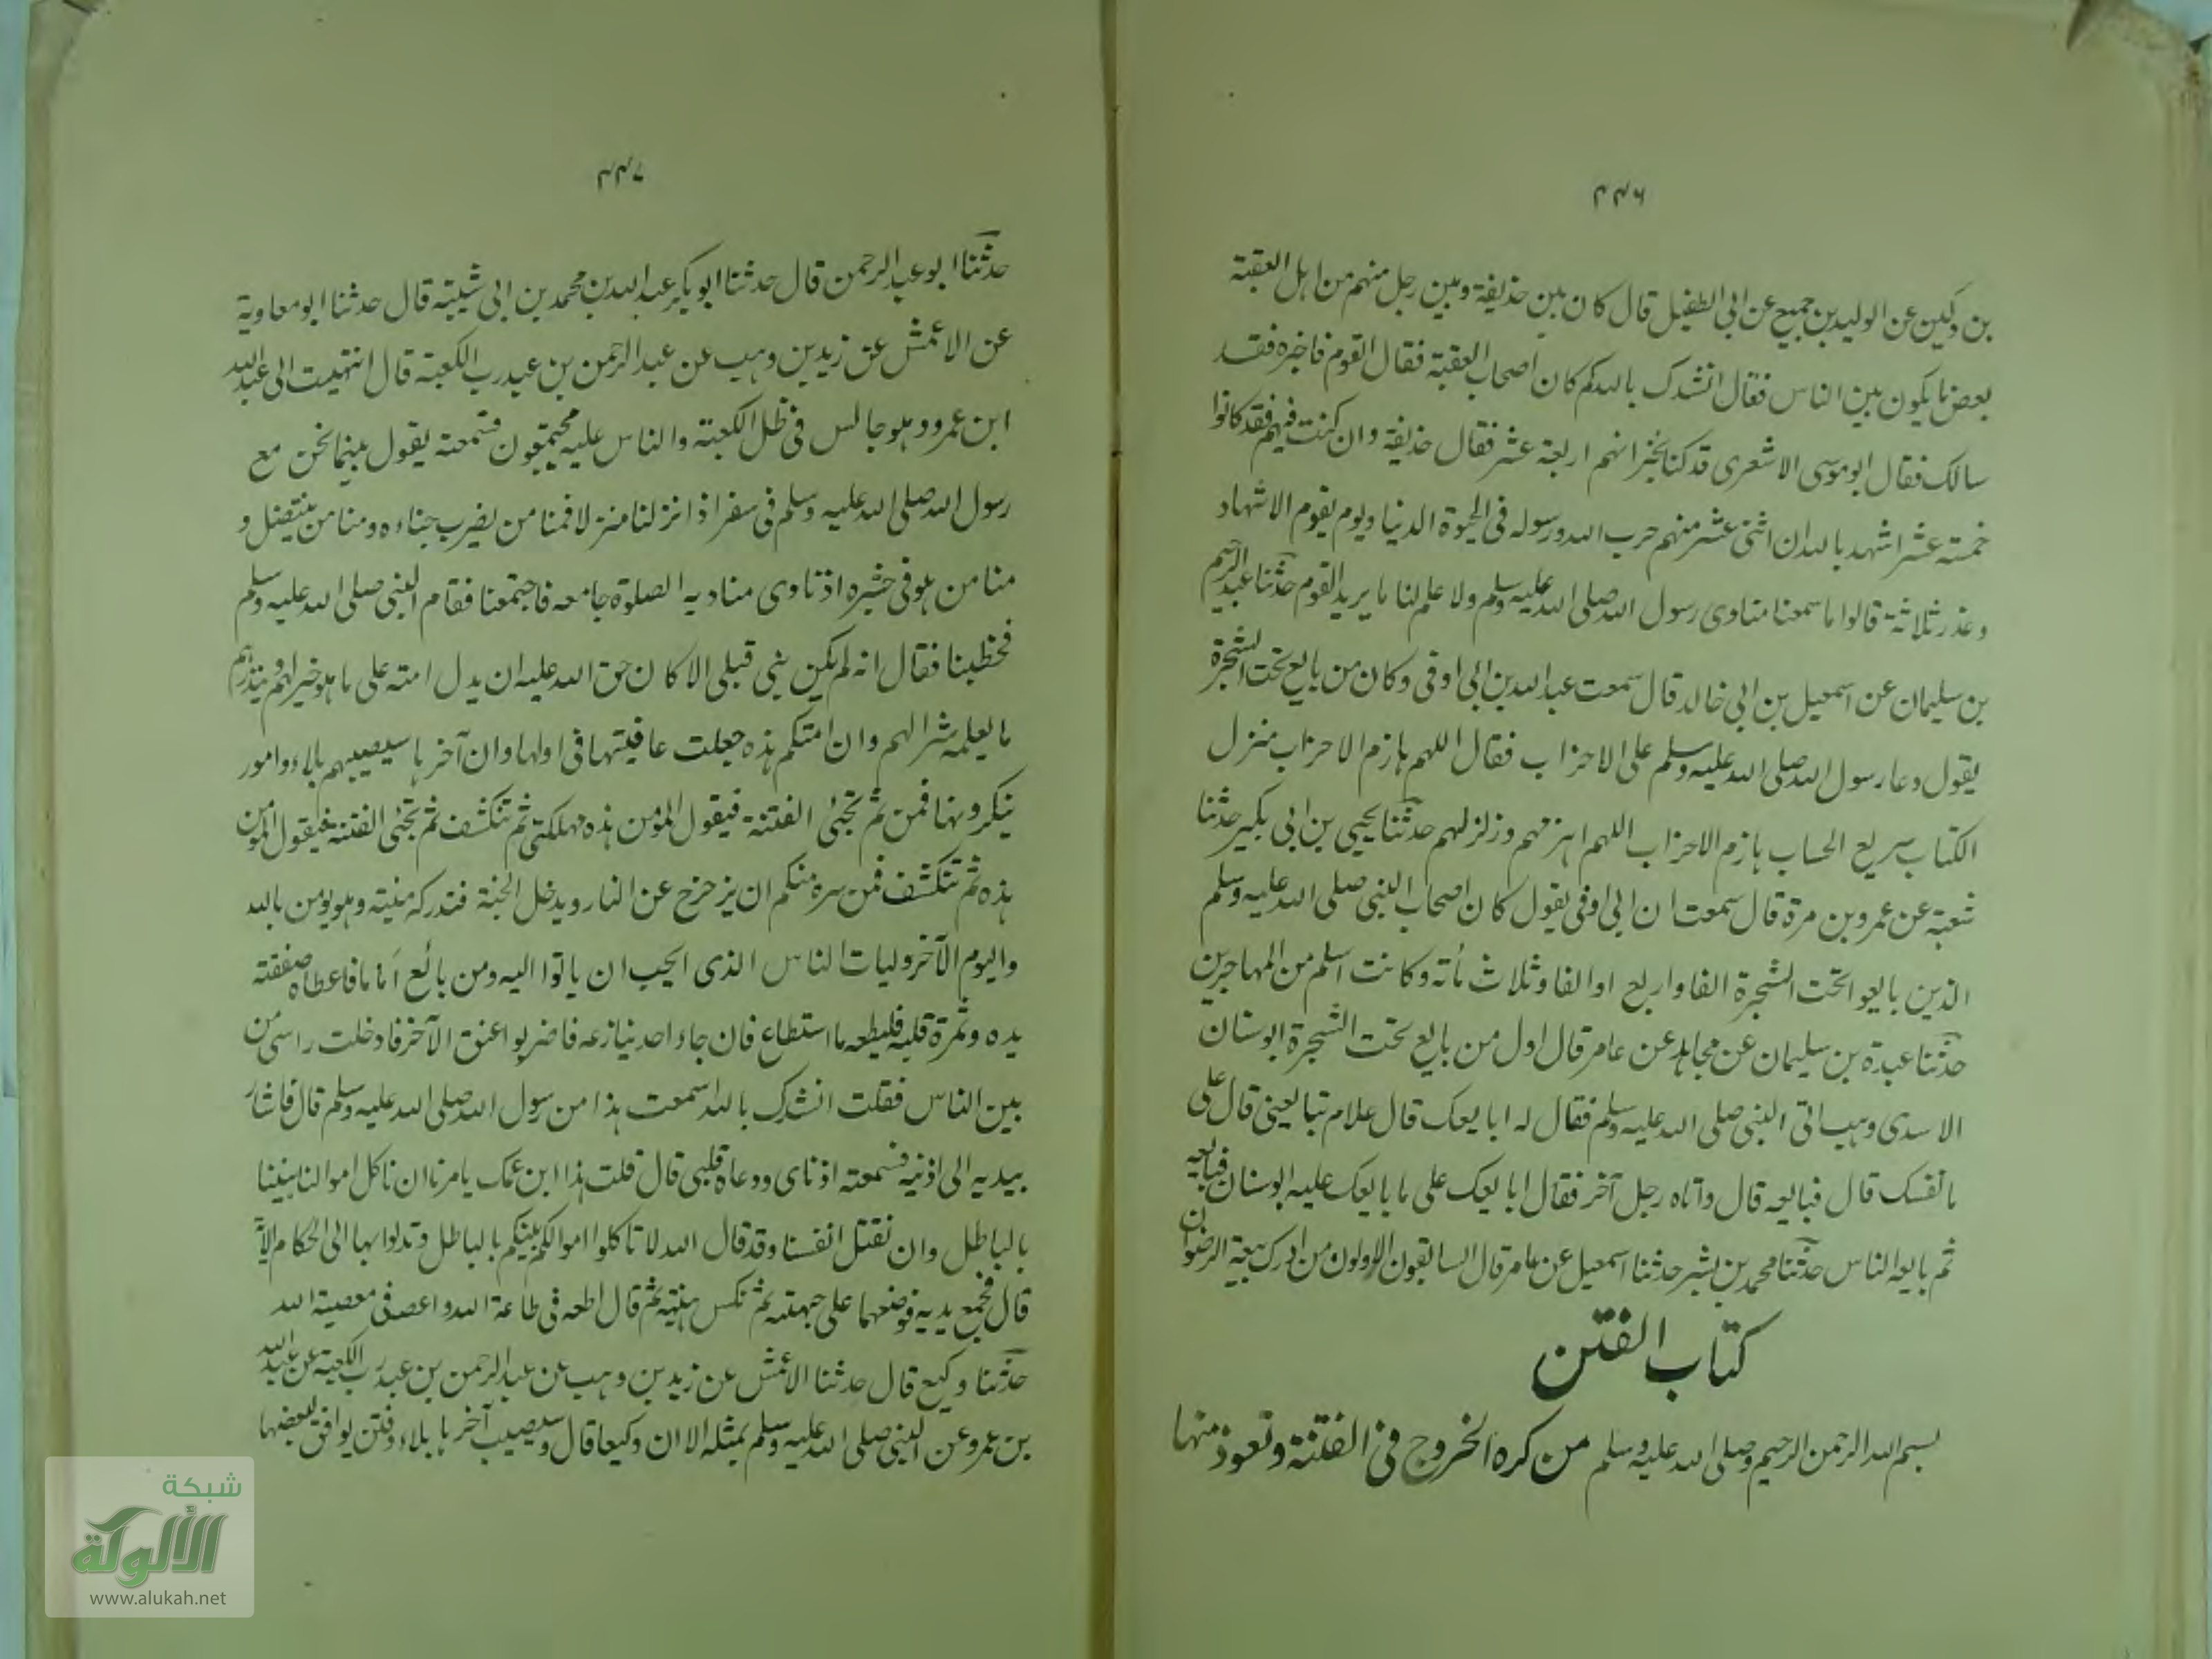 ٤٤٦
بن دكين عن الوليد بن جميع عن ابى الطفيل قال كان بين حذيفة وبين رجل منهم من اهل العقبة
بعض ما يكون بين الناس فقال انشدك بالله كم كان اصحاب العقبة فقال القوم فاخبره فقد
سالك فقال ابو موسى الاشعرى قد كنا نخبر انهم اربعة عشر فقال حذيفة وان كنت فيهم فقد كانوا
خمسة عشر اشهد بالله ان اثنى عشر منهم حرب الله ورسوله فى الحيوة الدنيا ويوم يقوم الاشهاد
وعذر ثلاثة قالوا ما سمعنا منادى رسول الله صلى الله عليه وسلم ولا علم لنا ما يريد القوم حدثنا عبد الرحيم
بن سليمان عن اسمعيل بن ابى خالد قال سمعت عبد الله بن ابى اوفى وكان من بايع تحت الشجرة
يقول دعا رسول الله صلى الله عليه وسلم على الاحزاب فقال اللهم هازم الاحزاب منزل
الكتاب سريع الحساب هازم الاحزاب اللهم اهزمهم وزلزلهم حدثنا يحيى بن ابى بكير حدثنا
شعبة عن عمرو بن مرة قال سمعت ان ابى اوفى يقول كان اصحاب النبى صلى الله عليه وسلم
الذين بايعوا تحت الشجرة الفا واربع او الفا وثلاث مأته وكانت اسلم من المهاجرين
حدثنا عبدة بن سليمان عن مجاهد عن عامر قال اول من بايع تحت الشجرة ابو سنان
الاسدى وهب اتى النبى صلى الله عليه وسلم فقال له ابايعك قال علام تبايعنى قال على
ما نفسك قال فبايعه قال واتاه رجل آخر فقال ابايعك على ما بايعك عليه ابو سنان فبايعه
ثم بايعه الناس حدثنا محمد بن بشر حدثنا اسمعيل عن عامر قال السابقون الاولون من ادرك بيعة الرضوان
كتاب الفتن
بسم الله الرحمن الرحيم وصلى الله عليه وسلم من كره الخروج فى الفتنة وتعوذ منها
٤٤٧
حدثنا ابو عبد الرحمن قال حدثنا ابو بكر عبد الله بن محمد بن ابى شيبة قال حدثنا ابو معاوية
عن الاعمش عن زيد بن وهب عن عبد الرحمن بن عبد رب الكعبة قال انتهيت الى عبد الله
ابن عمرو وهو جالس فى ظل الكعبة والناس عليه مجتمعون فسمعته يقول بينما نحن مع
رسول الله صلى الله عليه وسلم فى سفر اذ انزلنا منزلا فمنا من يضرب خباءه ومنا من ينتضل و
منا من هو فى جشره اذ نادى مناديه الصلوة جامعه فاجتمعنا فقام النبى صلى الله عليه وسلم
فخطبنا فقال انه لم يكن نبى قبلى الا كان حق الله عليه ان يدل امته على ما هو خير لهم وينذرهم
ما يعلمه شرا لهم وان امتكم هذه جعلت عافيتها فى اولها وان آخرها سيصيبهم بلاء وامور
ينكرونها فمن ثم تجئى الفتنة فيقول المؤمن هذه مهلكتى ثم تنكشف ثم تجئى الفتنة فيقول المؤمن
هذه ثم تنكشف فمن سره منكم ان يزحزح عن النار ويدخل الجنة فتدركه منيته وهو يومن بالله
واليوم الآخر وليات الناس الذى الحيب ان ياتوا اليه ومن بائع اماما فاعطاه صفقته
يده وثمرة قلبه فليطعه ما استطاع فان جاء احد ينازعه فاضربوا عنق الآخر فادخلت راسى من
بين الناس فقلت انشدك بالله اسمعت هذا من رسول الله صلى الله عليه وسلم قال فاشار
بيديه الى اذنيه فسمعته اذناى ووعاه قلبى قال قلت هذا ابن عمك يامرنا ان ناكل اموالنا بيننا
بالباطل وان نقتل انفسنا وقد قال الله لا تاكلوا اموالكم بينكم بالباطل وتدلوا بها الى الحكام الآية
قال فجمع يديه فوضعهما على جبهته ثم نكس هنيهة ثم قال اطعه فى طاعة الله واعصه فى معصية الله
حدثنا وكيع قال حدثنا الاعمش عن زيد بن وهب عن عبد الرحمن بن عبد رب الكعبة عن عبد الله
بن عمرو عن النبى صلى الله عليه وسلم بمثله الا ان وكيعا قال وسيصيب آخرها بلاء وفتن يوافق بعضها
شبكة
الألوكة
www.alukah.net